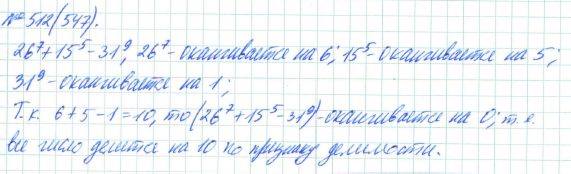 № 512(547).
26⁷+15⁵-31⁹, 26⁷- оканчивается на 6; 15⁵- оканчивается на 5;
31⁹- оканчивается на 1;
Т.к. 6+5-1=10, то (26⁷+15⁵-31⁹)-оканчивается на 0; т.е.
все число делится на 10 по признаку делимости.